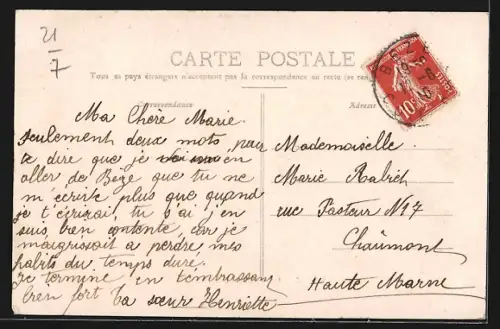 21
7
CARTE POSTALE
Tous les pays étrangers n'acceptent pas la correspondance au recto (se ren
Correspondance
Adresse
10
Ma Chère Marie.
Seulement deux mots, pour
te dire que je vais m'en
aller de Bèze que tu ne
m'écrive plus que quand
je t'écrirai, tu s'ai, j'en
suis bien contente, car je
maigrissait a perdre mes
habits du temps duré.
Je termine en t'embrassant
bien fort ta sœur Henriette
Mademoiselle
Marie
rue Pasteur N 17
Chaumont
Haute Marne